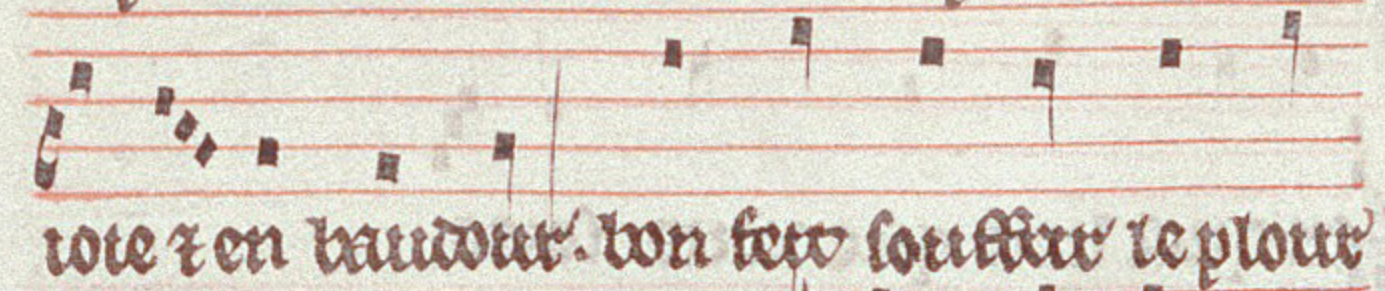 ioie ⁊ en baudour. bon fett souffrir le plour